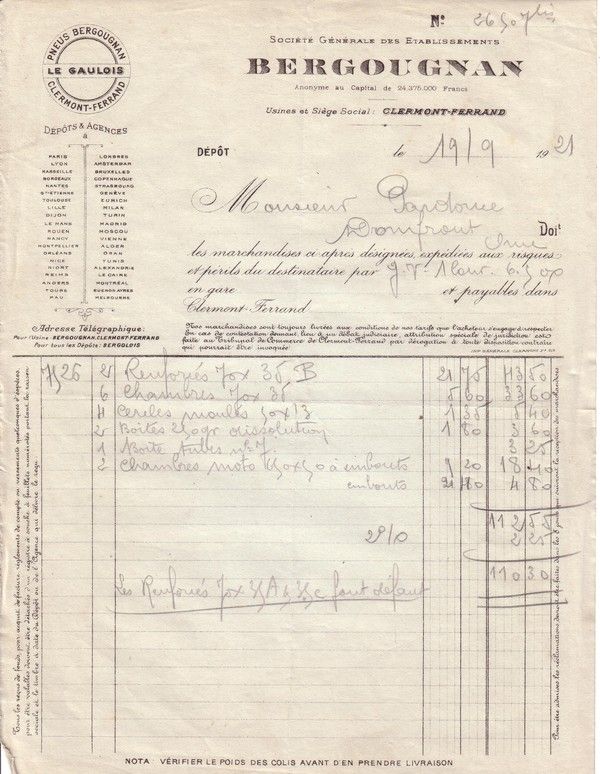 N° 2650
SOCIÉTÉ GÉNÉRALE DES ETABLISSEMENTS
BERGOUGNAN
Anonyme au Capital de 24.375.000 Francs
Usines et Siège Social: CLERMONT-FERRAND
PNEUS BERGOUGNAN
LE GAULOIS
CLERMONT-FERRAND
DÉPÔTS & AGENCES
à
PARIS LONDRES
LYON AMSTERDAM
MARSEILLE BRUXELLES
BORDEAUX COPENHAGUE
NANTES STRASBOURG
ST-ÉTIENNE GENÈVE
TOULOUSE ZURICH
LILLE MILAN
DIJON TURIN
LE MANS MADRID
ROUEN MOSCOU
NANCY VIENNE
MONTPELLIER ALGER
ORLÉANS ORAN
NICE TUNIS
NIORT ALEXANDRIE
REIMS LE CAIRE
ANGERS MONTRÉAL
TOURS BUENOS-AYRES
PAU MELBOURNE
DÉPÔT le 19/9 1921
Monsieur
Domfront Orne Doit
les marchandises ci après désignées, expédiées aux risques
et périls du destinataire par
en gare et payables dans
Clermont-Ferrand
Adresse Télégraphique:
Pour l'Usine: BERGOUGNAN.CLERMONT-FERRAND
Pour tous les Dépôts: BERGOLOIS
Nos marchandises sont toujours livrées aux conditions de nos tarifs que l'acheteur s'engage à respecter
En cas de contestation donnant lieu à un débat judiciaire, attribution spéciale de juridiction est
faite au Tribunal de Commerce de Clermont-Ferrand par dérogation à toute disposition contraire
qui pourrait être invoquée.
IMP GÉNÉRALE CLERMONT-FD
2 Renforcés 70x35 B 21 75 43 50
6 Chambres 70x35 5 60 33 60
4 Cercles moulés 1 35 5 40
2 Boites 250gr dissolution 1 80 3 60
1 Boite tubes n° 7. 3 25
2 Chambres moto 650x50 à embouts 9 20 18 40
embouts 2 40 4 80
112 55
2% 2 25
110 30
Les Renforcés 70x35 A & 35 C font défaut
NOTA VÉRIFIER LE POIDS DES COLIS AVANT D'EN PRENDRE LIVRAISON